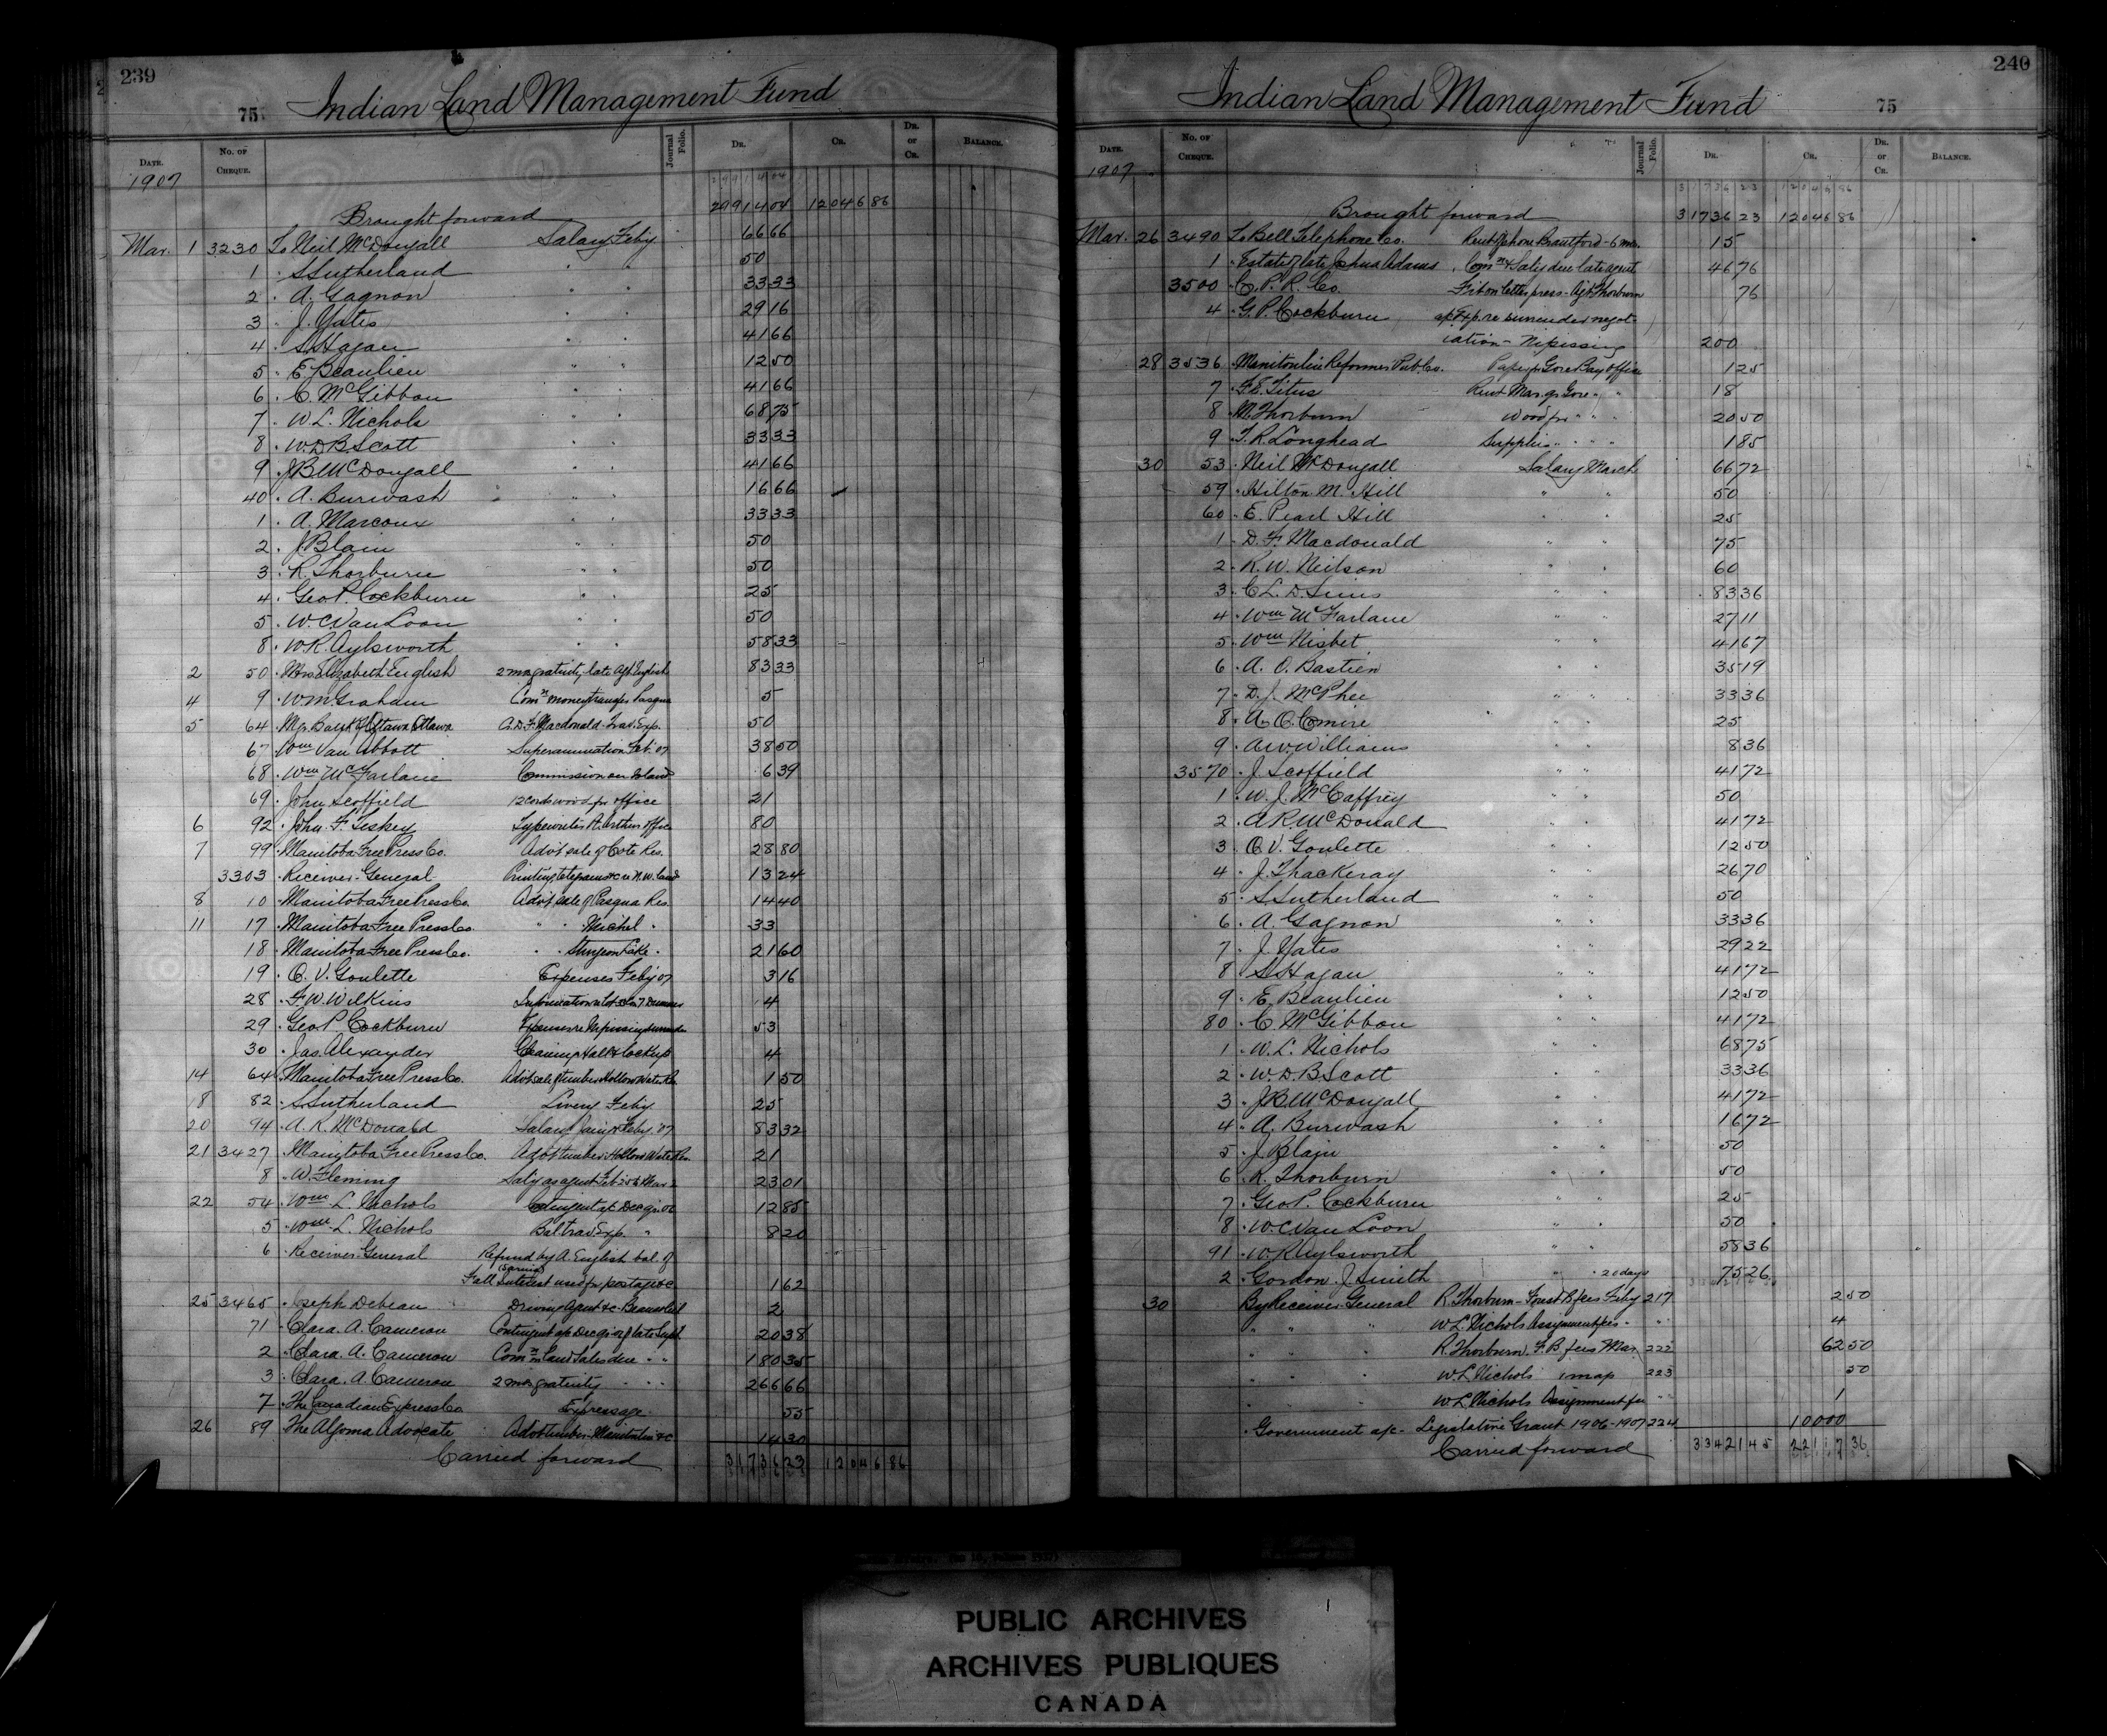 239
75 Indian Land Management Fund
Date. No. of Cheque. Journal Folio. Dr. Cr. Dr. or Cr. Balance.
1907
29914 04
Brought forward 29914 04 12046 86
Mar. 1 3230 To Neil McDougall Salary Feby 66 66
1 " S Sutherland " " 50
2 " A. Gagnon " " 33 33
3 " J. Yates " " 29 16
4 " S. Hagan " " 41 66
5 " E. Beaulieu " " 12 50
6 " C. McGibbon " " 41 66
7 " W. L. Nichols " " 68 75
8 " W.D.B Scott " " 33 33
9 " J.B. McDougall " " 41 66
40 " A. Burwash " " 16 66
1 " A. Marcoux " " 33 33
2 " J. Blain " " 50
3 " R. Thorburn " " 50
4 " Geo P. Cockburn " " 25
5 " W. C. Van Loon " " 50
8 " W R. Aylsworth " " 58 33
2 50 " Mrs. Elizabeth English 2 mos gratuity, late Agt English 83 33
4 9 " W. M. Graham Comn money transfer Pasqua 5
5 64 " Mgr. Bank of Ottawa Ottawa D. F. Macdonald Trav. Exp. 50
67 " Wm Van Abbott Superannuation Feb. 07 38 50
68 " Wm McFarlane Commission on land 6 39
69 " John Scoffield 12 cords wood for office 21
6 92 " John. F. Leskey Typewriter Pt. Arthur office 80
7 99 " Manitoba Free Press Co. Advt sale of Cote Res. 28 80
3303 " Receiver-General Printing telegrams &c re N.W. Land 13 24
8 10 " Manitoba Free Press Co. Advt sale of Pasqua Res. 14 40
11 17 " Manitoba Free Press Co. " " Michel " 33
18 " Manitoba Free Press Co. " " Sturgeon Lake " 21 60
19 " C. V. Goulette Expenses Feby 07 3 16
28 " F. W. Wilkins Information 4
29 " Geo P Cockburn Expenses re Nipissing surrender 53
30 " Jas. Alexander Cleaning Hall & lockup 4
14 64 " Manitoba Free Press Co. Advt sale of timber Hollow Water Res. 1 50
18 82 " S Sutherland Livery Feby 25
20 94 " A. R. McDonald Salary Jany & Feby. 07 83 32
21 3427 " Manitoba Free Press Co. Advt timber Hollow Water Res. 21
8 " W. Fleming Saly as agent Feb 23 01
22 54 " Wm L. Nichols Contingent ac Dec qr. 06 12 85
5 " Wm L. Nichols Bal trav Exp. " 8 20
6 " Receiver General Refund by A. English bal. of
(Sarnia)
Fall Interest used for postage &c 1 62
25 3465 " Joseph Debeau Driving Agent &c 2
71 " Clara. A. Cameron Contingent ac Dec qr 07 of late Supt 20 38
2 " Clara. A. Cameron Comn on Land Sales due " " 180 35
3 " Clara. A. Cameron 2 mos gratuity " " " 266 66
7 " The Canadian Express Co Expressage 55
26 89 " The Algoma Advocate Advt timber Manitoulin &c 14 30
Carried forward 31736 23 12046 86
240
Indian Land Management Fund 75
Date. No. of Cheque. Journal Folio. Dr. Cr. Dr. or Cr. Balance.
1907
31736 23 12046 86
Brought forward 31736 23 12046 86
Mar. 26 3490 To Bell Telephone Co. Rent of phone Brantford - 6 mos. 15
1 " Estate of late Joshua Adams Comn & Saly due late agent 46 76
3500 " C. P. R. Co. Frt on letter press - Agt Thorburn 76
4 " G. P. Cockburn ac Exp. re surrender negot-
iation - Nipissing 200
28 3536 " Manitoulin Reformer Pub. Co. Paper for Gore Bay Office 1 25
7 " F. E. Titus Rent Mar. qr Gore " " 18
8 " M. Thorburn Wood for " " " 20 50
9 " T. R. Longhead Supplies " " " " 1 85
30 53 " Neil McDougall Salary March 66 72
59 " Hilton M. Hill " " 50
60 " E. Pearl Hill " " 25
1 " D. F. Macdonald " " 75
2 " R. W. Neilson " " 60
3 " C. L. D. Sims " " 83 36
4 " Wm McFarlane " " 27 11
5 " Wm Nisbet " " 41 67
6 " A. O. Bastien " " 35 19
7 " D. J. McPhee " " 33 36
8 " A. O. Comire " " 25
9 " A W. Williams " " 8 36
3570 " J. Scoffield " " 41 72
1 " W. J. McCaffrey " " 50
2 " A R. McDonald " " 41 72
3 " C. V. Goulette " " 12 50
4 " J. Thackeray " " 26 70
5 " S. Sutherland " " 50
6 " A. Gagnon " " 33 36
7 " J. Yates " " 29 22
8 " S. Hagan " " 41 72
9 " E. Beaulieu " " 12 50
80 " C. McGibbon " " 41 72
1 " W. L. Nichols " " 68 75
2 " W. D. B. Scott " " 33 36
3 " J. B. McDougall " " 41 72
4 " A. Burwash " " 16 72
5 " J Blain " " 50
6 " R. Thorburn " " 50
7 " Geo P. Cockburn " " 25
8 " W. C Van Loon " " 50
91 " W. R Aylsworth " " 58 36
2 " Gordon. J. Smith " " 20 days 75 26
30 By Receiver General R. Thorburn - Forest B fees Feby 217 2 50
" " " W. L. Nichols Assignment fees - " " 4
" " " R. Thorburn. F. B fees Mar. 222 62 50
" " " W. L Nichols 1 map 223 50
" " " W. L. Nichols Assignment fee " " 1
" Government a/c - Legislative Grant 1906-1907 224 10000
Carried forward 33421 45 22117 36
PUBLIC ARCHIVES
ARCHIVES PUBLIQUES
CANADA